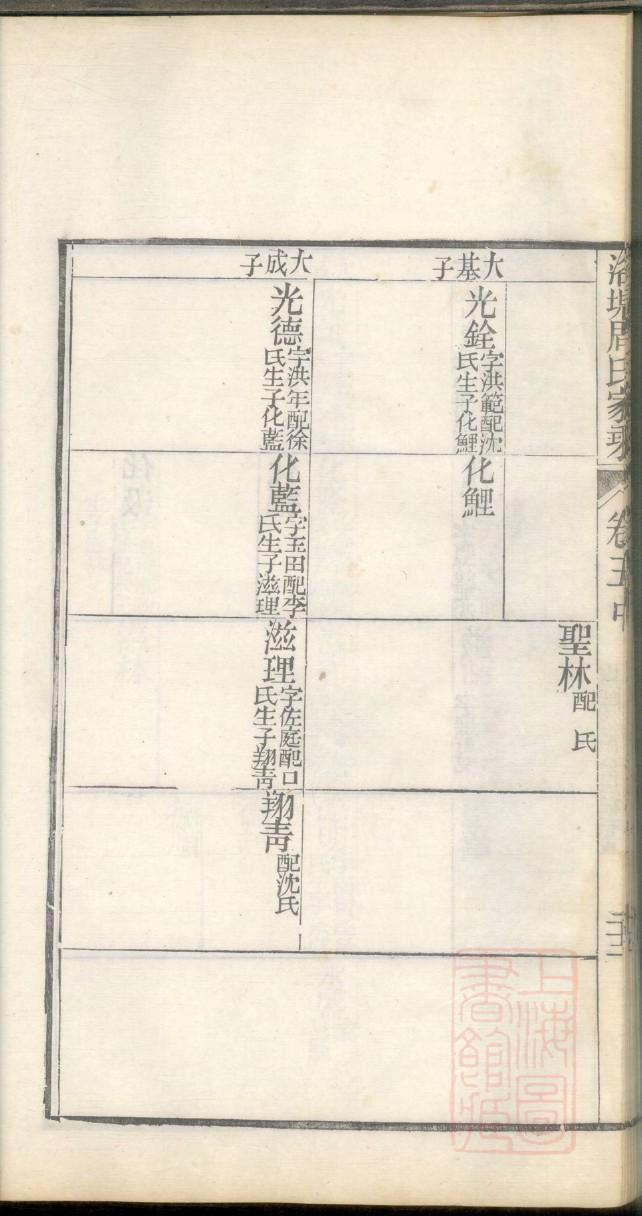 洛塘周氏家乘
卷五中
聖林配 氏
大基子
光銓字洪範配沈
氏生子化鯉
化鯉
大成子
光德字洪年配徐
氏生子化藍
化藍字玉田配李
氏生子滋理
滋理字佐庭配口
氏生子翔靑
翔靑配沈氏
上海圖
書館藏